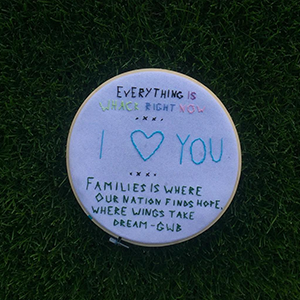 EVERYTHING IS
WHACK RIGHT NOW
I ♡ YOU
FAMILIES IS WHERE
OUR NATION FINDS HOPE,
WHERE WINGS TAKE
DREAM-GWB